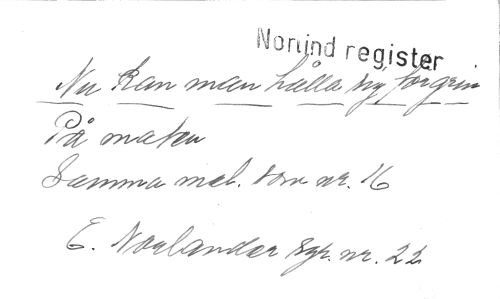 Norlind register
Nu kan man hålla sig för grin
På maten
Samma mel. som nr. 16
E. Norlander syr. nr. 22